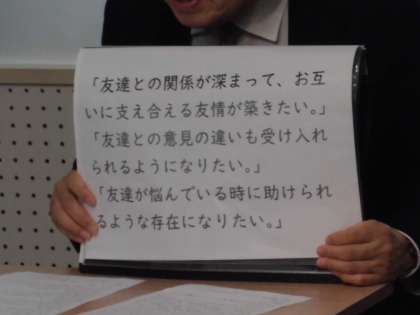 「友達との関係が深まって、お互
いに支え合える友情が築きたい。」
「友達との意見の違いも受け入れ
られるようになりたい。」
「友達が悩んでいる時に助けられ
るような存在になりたい。」